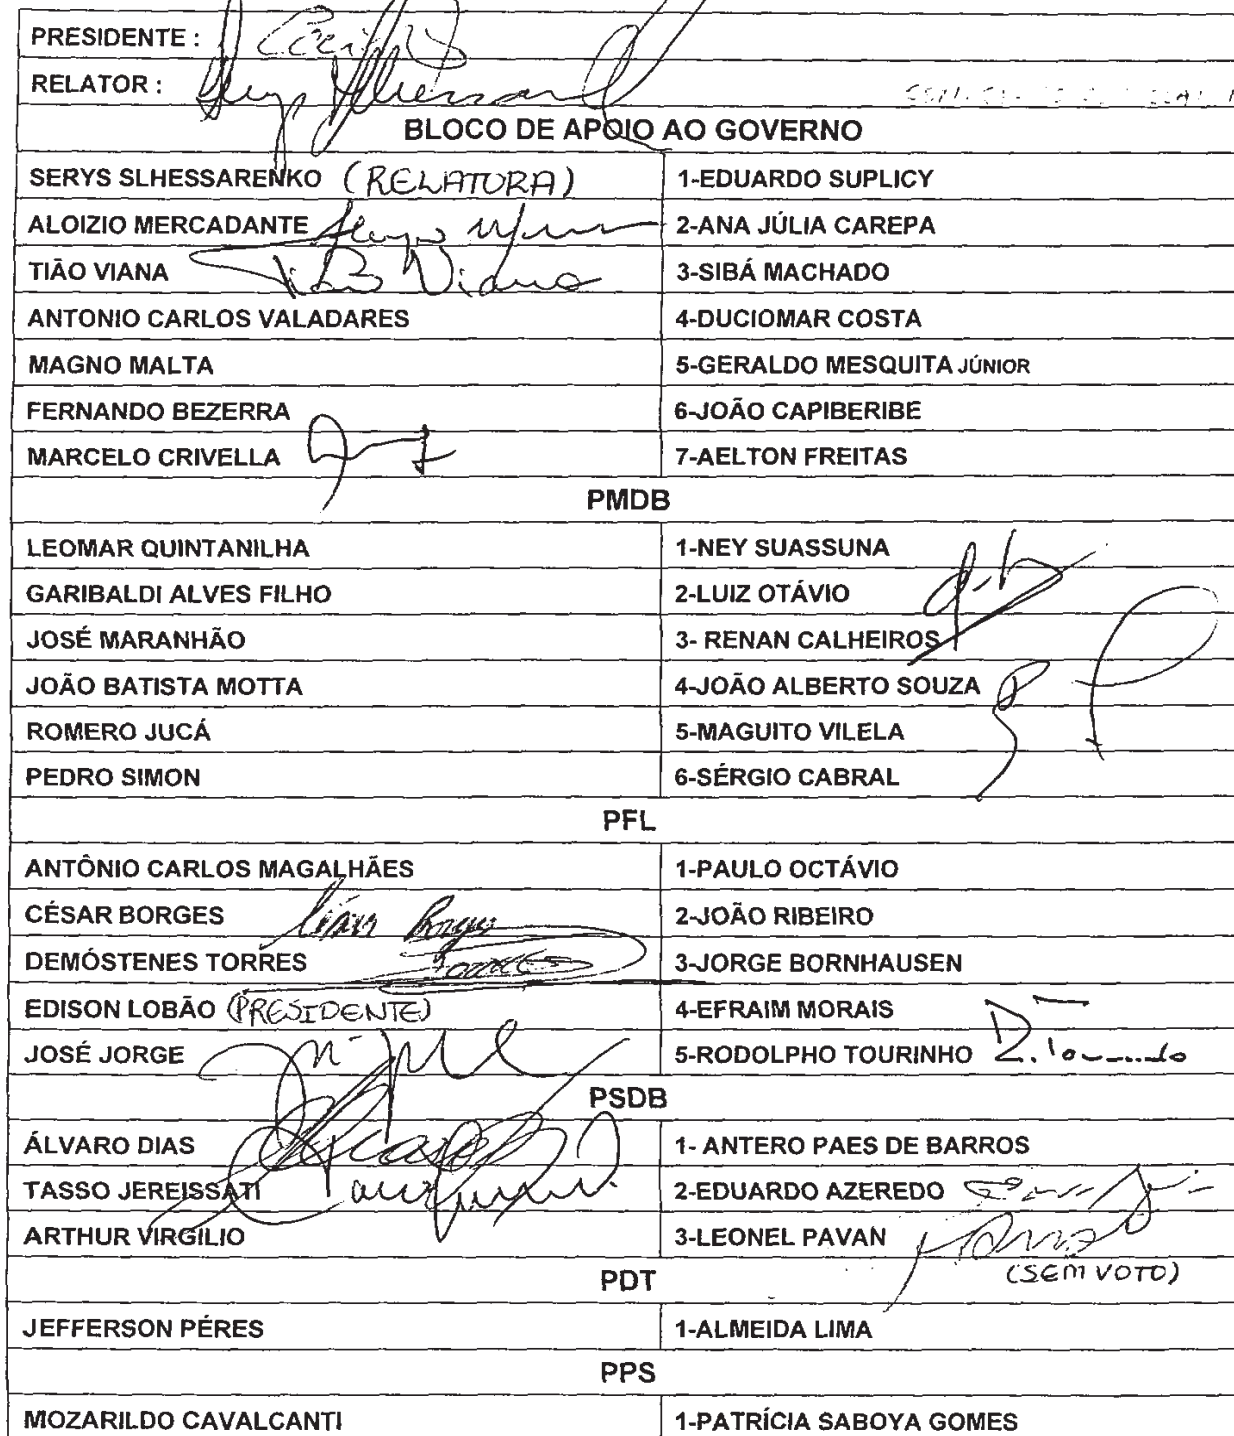 PRESIDENTE :
RELATOR :
BLOCO DE APOIO AO GOVERNO
SERYS SLHESSARENKO (RELATORA) 1-EDUARDO SUPLICY
ALOIZIO MERCADANTE 2-ANA JÚLIA CAREPA
TIÃO VIANA Tião Viana 3-SIBÁ MACHADO
ANTONIO CARLOS VALADARES 4-DUCIOMAR COSTA
MAGNO MALTA 5-GERALDO MESQUITA JÚNIOR
FERNANDO BEZERRA 6-JOÃO CAPIBERIBE
MARCELO CRIVELLA 7-AELTON FREITAS
PMDB
LEOMAR QUINTANILHA 1-NEY SUASSUNA
GARIBALDI ALVES FILHO 2-LUIZ OTÁVIO
JOSÉ MARANHÃO 3- RENAN CALHEIROS
JOÃO BATISTA MOTTA 4-JOÃO ALBERTO SOUZA
ROMERO JUCÁ 5-MAGUITO VILELA
PEDRO SIMON 6-SÉRGIO CABRAL
PFL
ANTÔNIO CARLOS MAGALHÃES 1-PAULO OCTÁVIO
CÉSAR BORGES César Borges 2-JOÃO RIBEIRO
DEMÓSTENES TORRES 3-JORGE BORNHAUSEN
EDISON LOBÃO (PRESIDENTE) 4-EFRAIM MORAIS
JOSÉ JORGE 5-RODOLPHO TOURINHO
PSDB
ÁLVARO DIAS 1- ANTERO PAES DE BARROS
TASSO JEREISSATI 2-EDUARDO AZEREDO
ARTHUR VIRGÍLIO 3-LEONEL PAVAN
(SEM VOTO)
PDT
JEFFERSON PÉRES 1-ALMEIDA LIMA
PPS
MOZARILDO CAVALCANTI 1-PATRÍCIA SABOYA GOMES